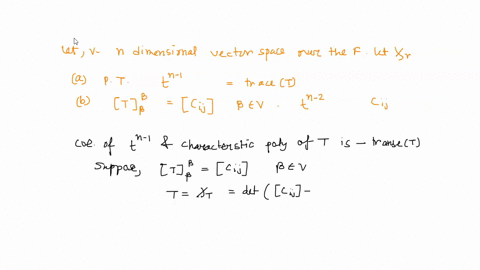 Let, V- n dimensional vector space over the F. Let χ_T
(a) P.T. t^{n-1} = trace (T)
(b) [T]_β^β = [C_{ij}] β∈V . t^{n-2} C_{ij}
coe. of t^{n-1} & characteristic poly of T is - transe(T)
Suppose, [T]_β^β = [C_{ij}] β∈V
T = χ_T = det ([C_{ij}] -